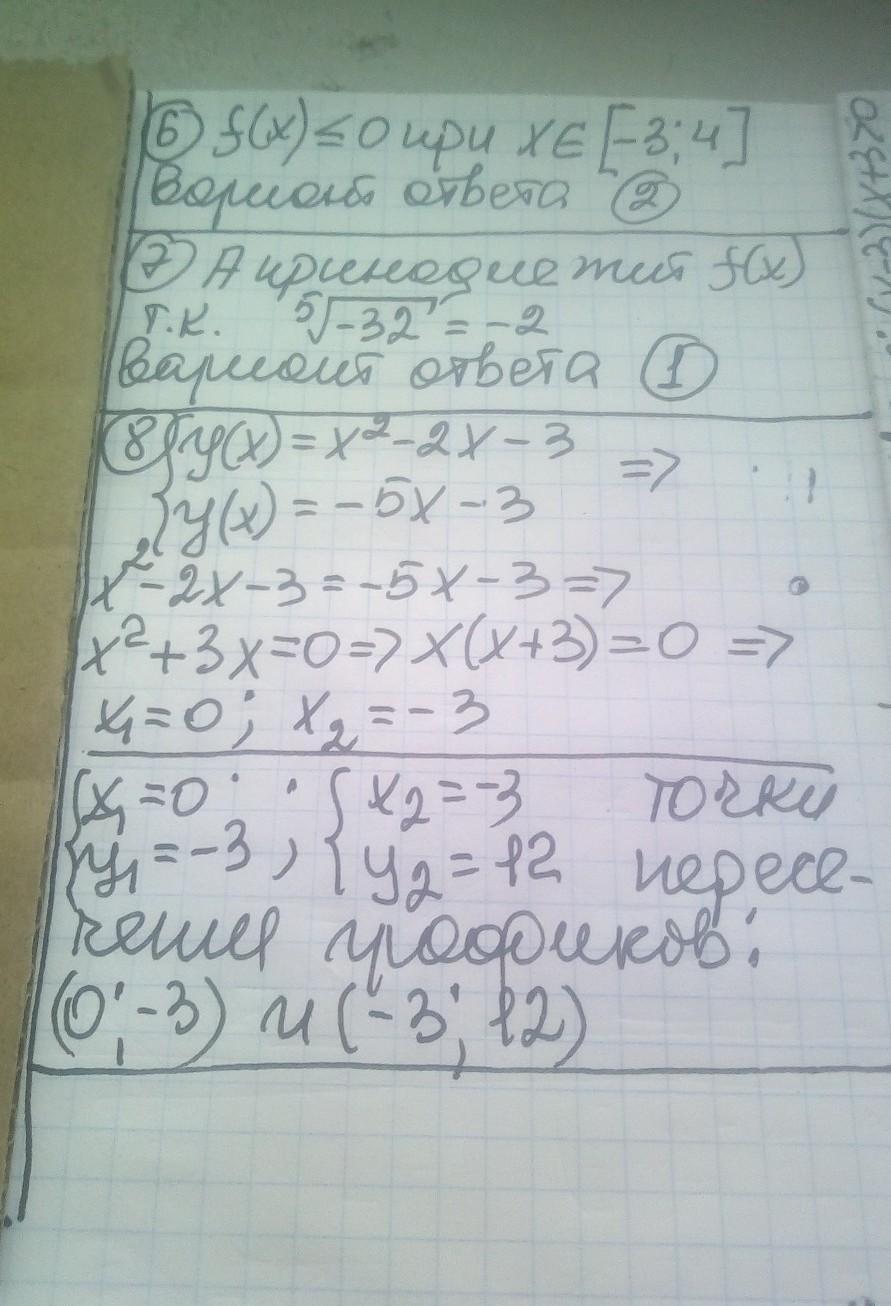 ⑥ f(x) ≤ 0 при x ∈ [-3; 4]
Вариант ответа ②
⑦ А принадлежит f(x)
т.к. ⁵√-32 = -2
Вариант ответа ①
⑧ { y(x) = x² - 2x - 3
{ y(x) = -5x - 3 =>
x² - 2x - 3 = -5x - 3 =>
x² + 3x = 0 => x(x+3) = 0 =>
x₁ = 0; x₂ = -3
{ x₁ = 0 ; { x₂ = -3 точки
{ y₁ = -3 ; { y₂ = 12 пересе-
чения графиков:
(0; -3) и (-3; 12)